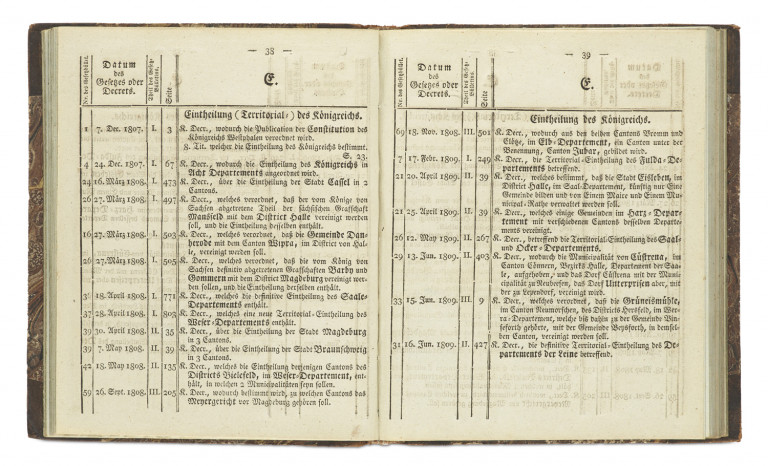 — 38 —
Nr. des Gesetzbülle.
Datum
des
Gesetzes oder
Decrets.
Theil des Gesetz-
Bülletins.
Seite
E.
Eintheilung (Territorial-) des Königreichs.
1 7. Dec. 1807. I. 3 K. Decr., wodurch die Publication der Constitution des
Königreichs Westphalen verordnet wird.
8. Tit. welcher die Eintheilung des Königreichs bestimmt.
S. 23.
4 24. Dec. 1807. I. 67 K. Decr., wodurch die Eintheilung des Königreichs in
Acht Departements angeordnet wird.
24 16. März 1808. I. 473 K. Decr., über die Eintheilung der Stadt Cassel in 2
Cantons.
26 27. März 1808. I. 497 K. Decr., welches verordnet, daß der vom Könige von
Sachsen abgetretene Theil der sächsischen Grafschaft
Mansfeld mit dem District Halle vereinigt werden
soll, und die Eintheilung desselben enthält.
16 27. März 1808. I. 503 K. Decr., welches verordnet, daß die Gemeinde Dan-
kerode mit dem Canton Wipra, im District von Hal-
le, vereinigt werden soll.
26 27. März 1808. I. 505 K. Decr., welches verordnet, daß die vom König von
Sachsen definitiv abgetretenen Grafschaften Barby und
Gommern mit dem District Magdeburg vereinigt wer-
den sollen, und die Eintheilung derselben enthält.
3 18. April 1808. I. 771 K. Decr., welches die definitive Eintheilung des Saale-
Departements enthält.
37 28. April 1808. I. 803 K. Decr., welches eine neue Territorial-Eintheilung des
Weser-Departements enthält.
39 30. April 1808. II. 35 K. Decr., über die Eintheilung der Stadt Magdeburg
in 3 Cantons.
39 7. May 1808. II. 39 K. Decr., über die Eintheilung der Stadt Braunschweig
in 3 Cantons.
42 18. May 1808. II. 135 K. Decr., welches die Eintheilung derjenigen Cantons des
Districts Bielefeld, im Weser-Departement, ent-
hält, in welchen 2 Municipalitäten seyn sollen.
59 26. Sept. 1808. III. 205 K. Decr., wodurch bestimmt wird, zu welchen Cantons das
Meyergericht vor Magdeburg gehören soll.
— 39 —
Nr. des Gesetzbülle.
Datum
des
Gesetzes oder
Decrets.
Theil des Gesetz-
Bülletins.
Seite
E.
Eintheilung des Königreichs.
69 18. Nov. 1808. III. 501 K. Decr., wodurch aus den beiden Cantons Bromm und
Clötze, im Elb-Departement, ein Canton unter der
Benennung, Canton Jubar, gebildet wird.
7 17. Febr. 1809. I. 249 K. Decr., die Territorial-Eintheilung des Fulda-De-
partements betreffend.
21 20. April 1809. II. 39 K. Decr., welches bestimmt, daß die Stadt Eisleben, im
District Halle, im Saal-Departement, künftig nur Eine
Gemeinde bilden und von Einem Maire und Einem Mu-
nicipal-Rathe verwaltet werden soll.
21 25. April 1809. II. 39 K. Decr., welches einige Gemeinden im Harz-Depar-
tement mit verschiedenen Cantons desselben Departe-
ments vereinigt.
26 12. May 1809. II. 267 K. Decr., betreffend die Territorial-Eintheilung des Saal-
und Ocker-Departements.
29 13. Jun. 1809. II. 403 K. Decr., wodurch die Municipalität von Cüstrena, im
Canton Cönnern, Bezirks Halle, Departement der Saa-
le, aufgehoben, und das Dorf Cüstrena mit der Munici-
palität zu Neubeesen, das Dorf Unterprisen aber, mit
der zu Lependorf, vereinigt wird.
33 15. Jun. 1809. III. 9 K. Decr., welches verordnet, daß die Grüneismühle,
im Canton Neumorschen, des Districts Hersfeld, im Wer-
ra-Departement, welche bis dahin zu der Gemeinde Bin-
seforth gehörte, mit der Gemeinde Beysforth, in demsel-
ben Canton, vereinigt werden soll.
31 16. Jun. 1809. II. 427 K. Decr., die definitive Territorial-Eintheilung des De-
partements der Leine betreffend.